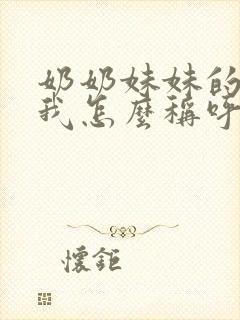 奶奶妹妹的
我怎麼稱呼
懷鉅